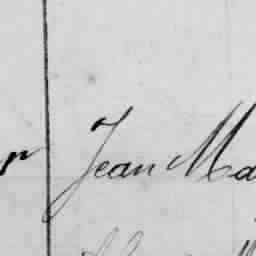 Jean Ma